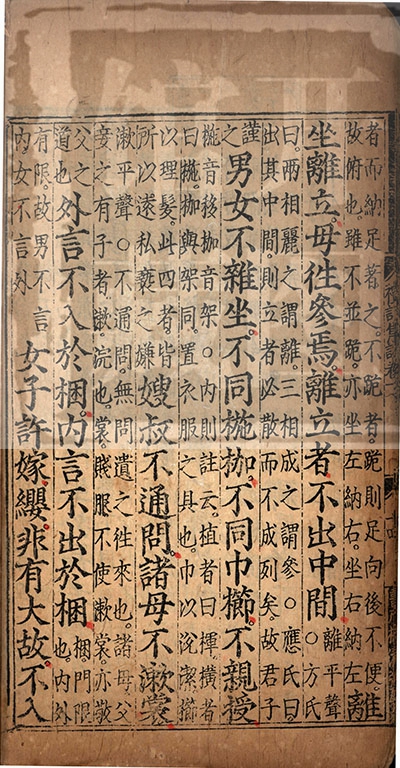 者而納足者之不跪者跪則足向後不便
故俯也雖不並跪亦坐左納右坐右納左
離
坐離立毋徃參焉離立者不出中間
離平聲
○方氏
曰兩相麗之謂離三相成之謂參○應氏曰
出其中間則立者必散而不成列矣故君子
謹
之
男女不雜坐不同椸枷不同巾櫛不親授
椸音移枷音架○內則註云植者曰楎橫者
曰椸枷與架同置衣服之具也巾以涚潔櫛
以理髮此四者皆
所以遠私褻之嫌
嫂叔不通問諸母不漱裳
漱平聲○不通問無問遺之徃來也諸母父
妾之有子者漱浣也裳賤服不使漱裳亦敬
父之
道也
外言不入於梱內言不出於梱
梱門限
也內外
有限故男不言
內女不言外
女子許嫁纓非有大故不入